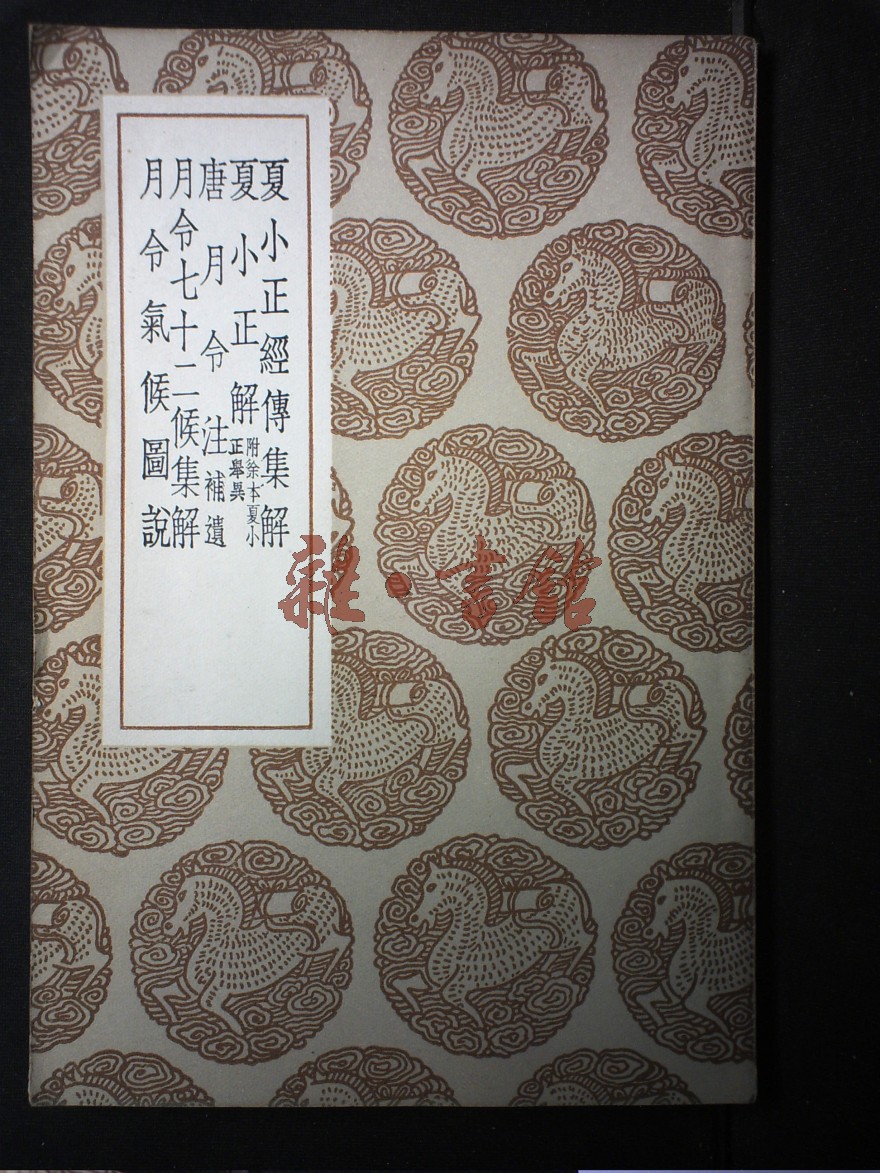 夏小正經傳集解
夏小正解附徐本夏小正舉異
唐月令注補遺
月令七十二候集解
月令氣候圖說
雜·書館